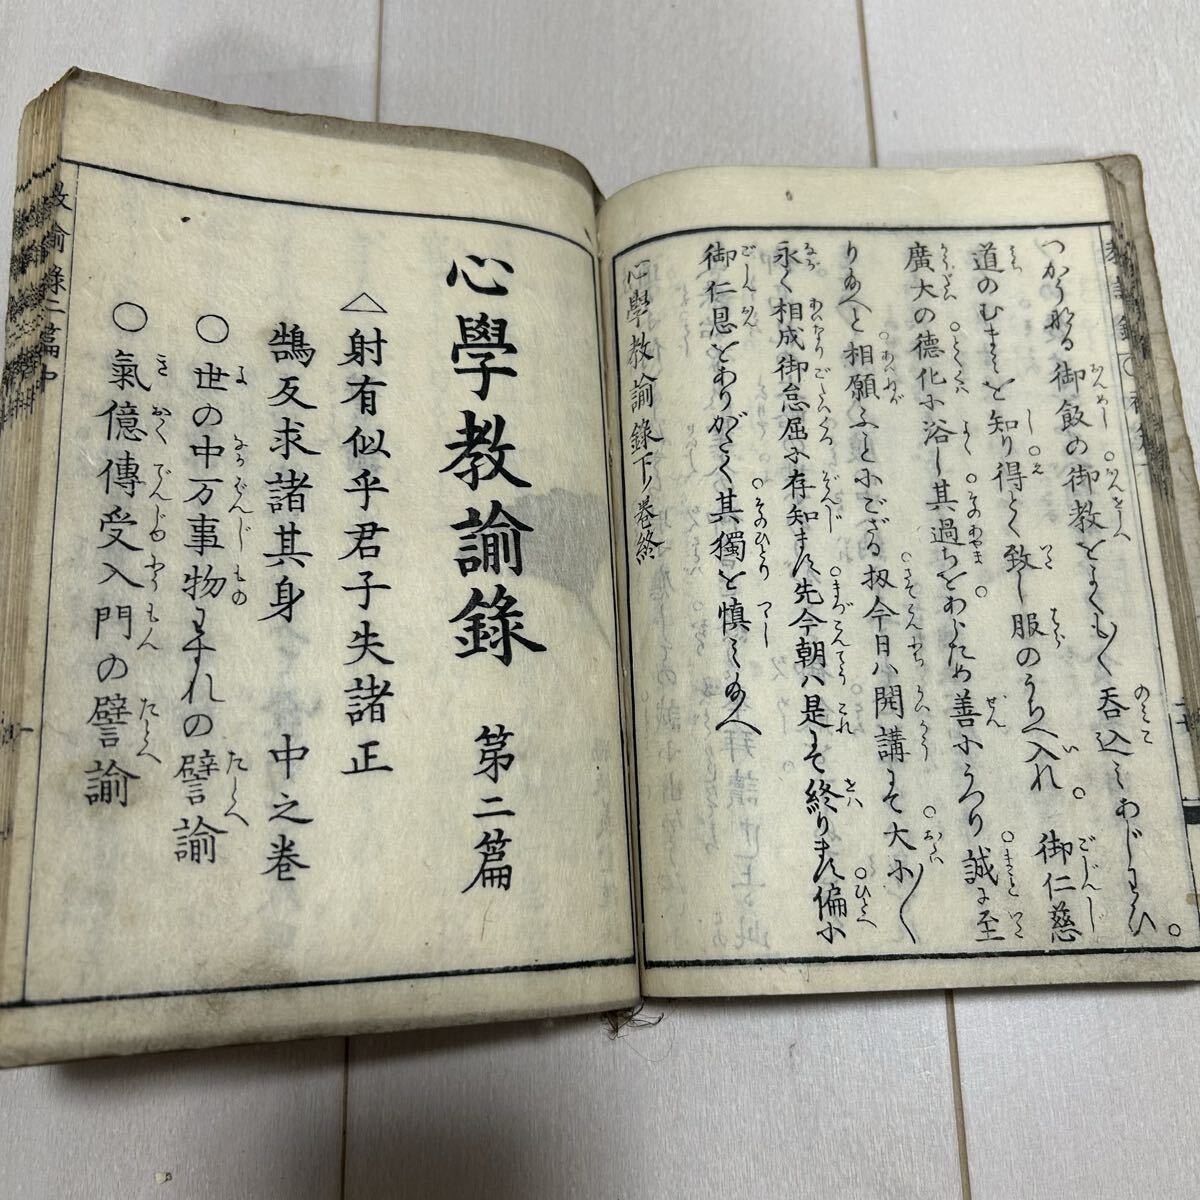 つかうまつる御飯の御教をよくもく呑込みあじわひ。
道のむまみを知り得とく致し服のうちへ入れ。御仁慈
廣大の德化に浴し其過ちをあらため善にうつり誠に至
り給へと相願ふことにござる扨今日ハ開講にて大小く
永く相成御怠屈に存知ます先今朝ハ是にて終ります偏に
御仁恩をありがたく其獨を慎み給へ
心學教諭錄下ノ巻終
心學教諭錄　第二篇
△射有似乎君子失諸正
鵠反求諸其身　中之巻
○世の中万事物わすれの譬諭
○氣億傳受入門の譬諭
教諭錄二篇中